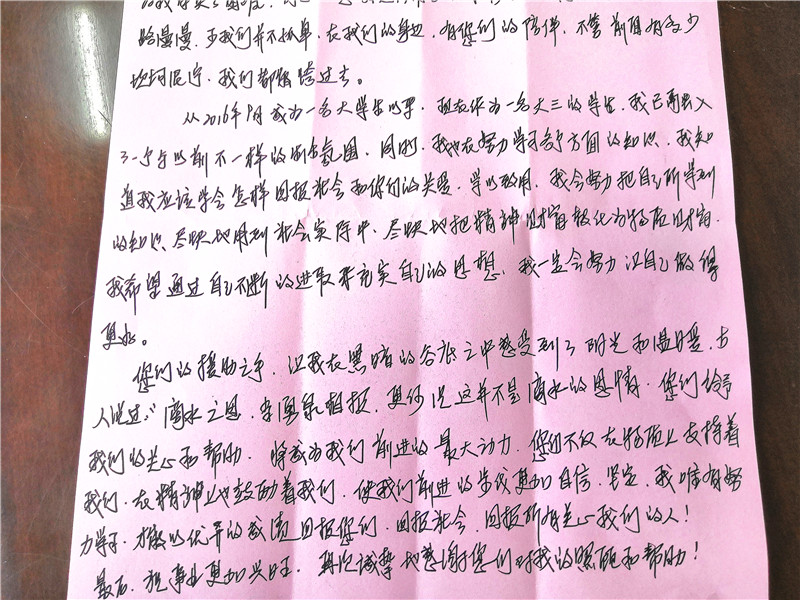 路漫漫，而我们并不孤单，在我们的身边，有您们的陪伴，不管前面有多少
坎坷泥泞，我们都能跨过去。
从2016年9月成为一名大学生以来，现在作为一名大三的学生，我已融入
了一与以前不一样的氛围，同时，我也在努力学习各个方面的知识，我知
道我应该学会怎样回报社会和你们的关爱，学以致用，我会努力把自己所学到
的知识，尽快地用到社会实际中，尽快地把精神财富转化为物质财富，
我希望通过自己不断的进取来充实自己的思想，我一定会努力让自己做得
更好。
您们的援助之手，让我在黑暗的谷底之中感受到了阳光和温暖，古
人说过：滴水之恩，当涌泉相报，更何况这并不是滴水的恩情，您们给予
我们的关心和帮助，将成为我们前进的最大动力，您们不仅在物质上支持着
我们，在精神上也鼓励着我们，使我们前进的步伐更加自信，坚定，我唯有努
力学习，才能以优异的成绩回报您们，回报社会，回报所有关心我们的人！
最后，祝事业更加兴旺，再次诚挚地感谢您们对我的照顾和帮助！